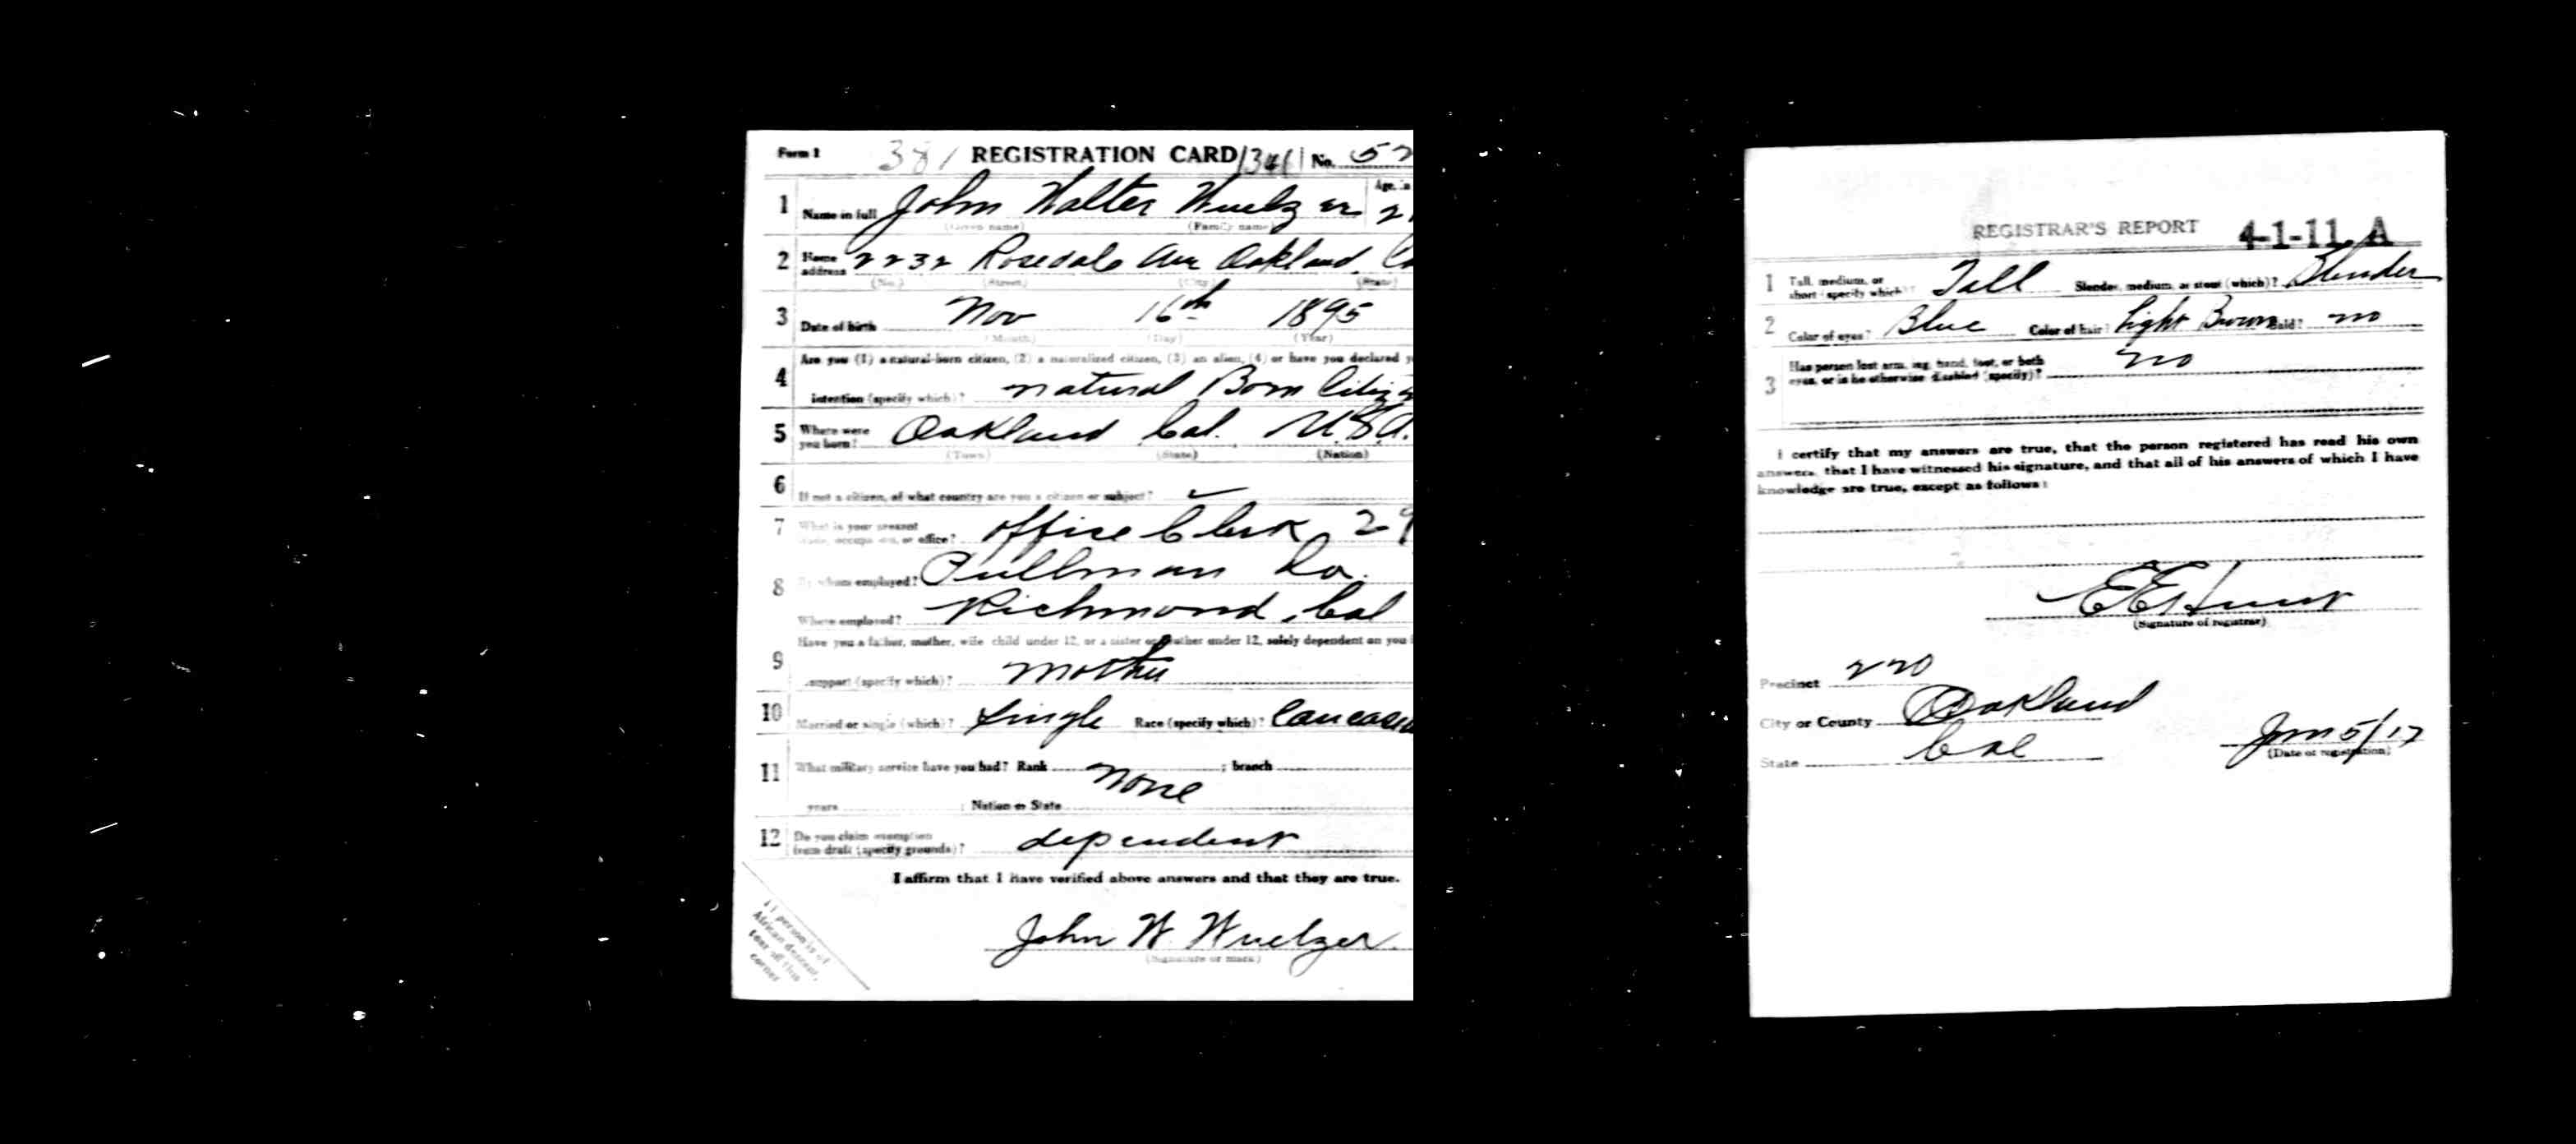 Form 1 381 REGISTRATION CARD 1341 No. 52
1 Name in full John Walter Wuelzer Age, in 21
(Given name) (Family name)
2 Home address 2232 Rosedale Ave Oakland, Ca
(No.) (Street) (City) (State)
3 Date of birth Nov 16th 1895
(Month) (Day) (Year)
4 Are you (1) a natural-born citizen, (2) a naturalized citizen, (3) an alien, (4) or have you declared y
intention (specify which)? natural Born Citiz
5 Where were you born? Oakland Cal. U.S.A.
(Town) (State) (Nation)
6 If not a citizen, of what country are you a citizen or subject?
7 What is your present trade, occupation, or office? office Clerk 29
8 By whom employed? Pullman Co.
Where employed? Richmond, Cal
9 Have you a father, mother, wife child under 12, or a sister or brother under 12, solely dependent on you
support (specify which)? mother
10 Married or single (which)? Single Race (specify which)? Caucasia
11 What military service have you had? Rank None ; branch
years ; Nation or State
12 Do you claim exemption from draft (specify grounds)? dependent
I affirm that I have verified above answers and that they are true.
John W. Wuelzer.
(Signature or mark)
If person is of
African descent,
tear off this
corner
REGISTRAR'S REPORT 4-1-11. A
1 Tall, medium, or short (specify which)? Tall Slender, medium, or stout (which)? Slender
2 Color of eyes? Blue Color of hair? Light Brown Bald? no
3 Has person lost arm, leg, hand, foot, or both eyes, or is he otherwise disabled (specify)? no
I certify that my answers are true, that the person registered has read his own
answers, that I have witnessed his signature, and that all of his answers of which I have
knowledge are true, except as follows:
E E Hunt
(Signature of registrar)
Precinct 220
City or County Oakland
State Cal
Jun 5/17
(Date of registration)